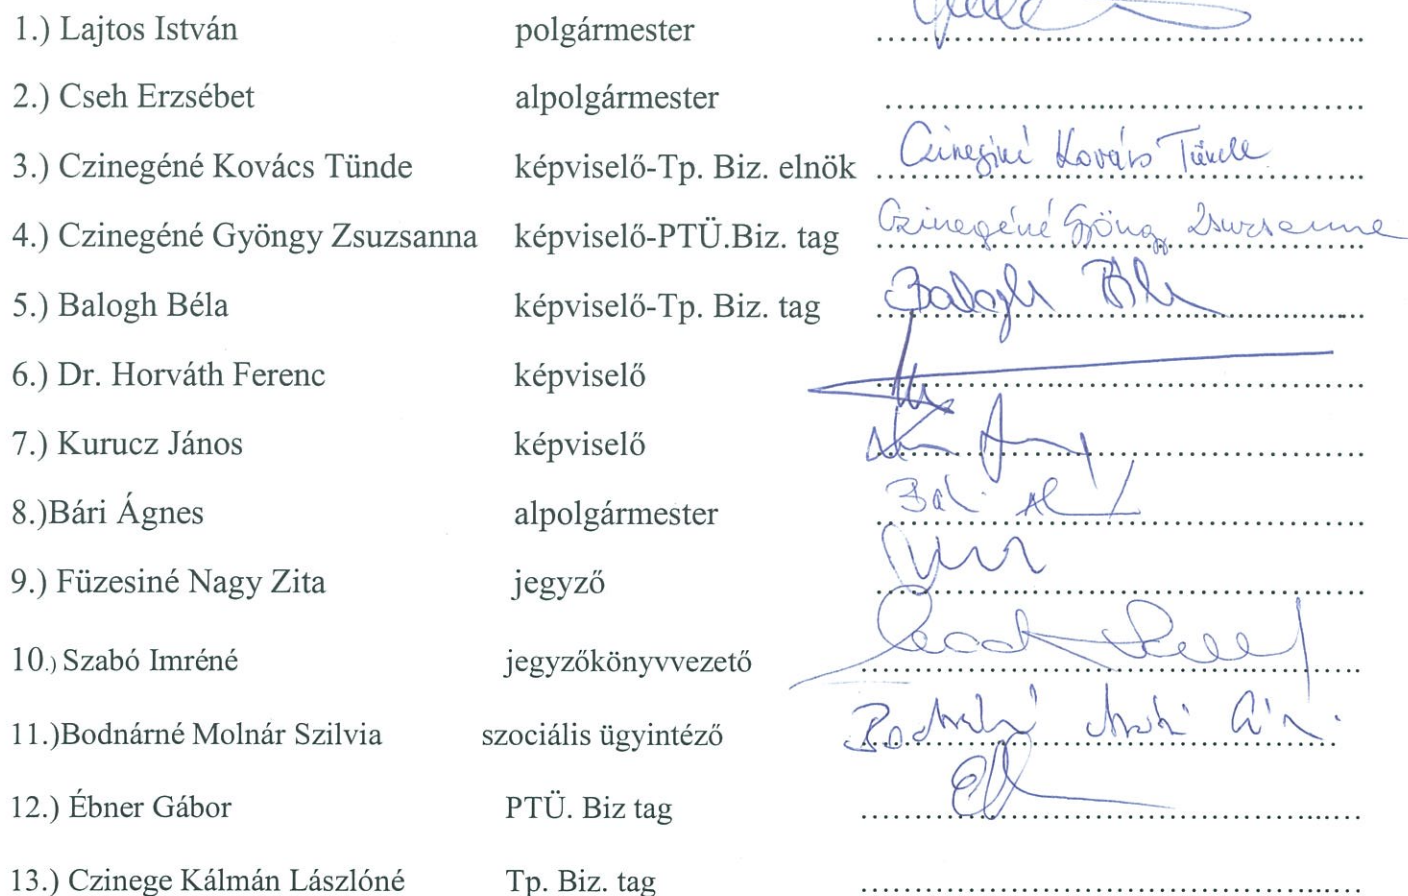 1.) Lajtos István polgármester ................................
2.) Cseh Erzsébet alpolgármester ................................
3.) Czinegéné Kovács Tünde képviselő-Tp. Biz. elnök Czinegéné Kovács Tünde
4.) Czinegéné Gyöngy Zsuzsanna képviselő-PTÜ.Biz. tag Czinegéné Gyöngy Zsuzsanna
5.) Balogh Béla képviselő-Tp. Biz. tag Balogh Béla
6.) Dr. Horváth Ferenc képviselő ................................
7.) Kurucz János képviselő ................................
8.)Bári Ágnes alpolgármester ................................
9.) Füzesiné Nagy Zita jegyző ................................
10.) Szabó Imréné jegyzőkönyvvezető ................................
11.)Bodnárné Molnár Szilvia szociális ügyintéző ................................
12.) Ébner Gábor PTÜ. Biz tag ................................
13.) Czinege Kálmán Lászlóné Tp. Biz. tag ................................